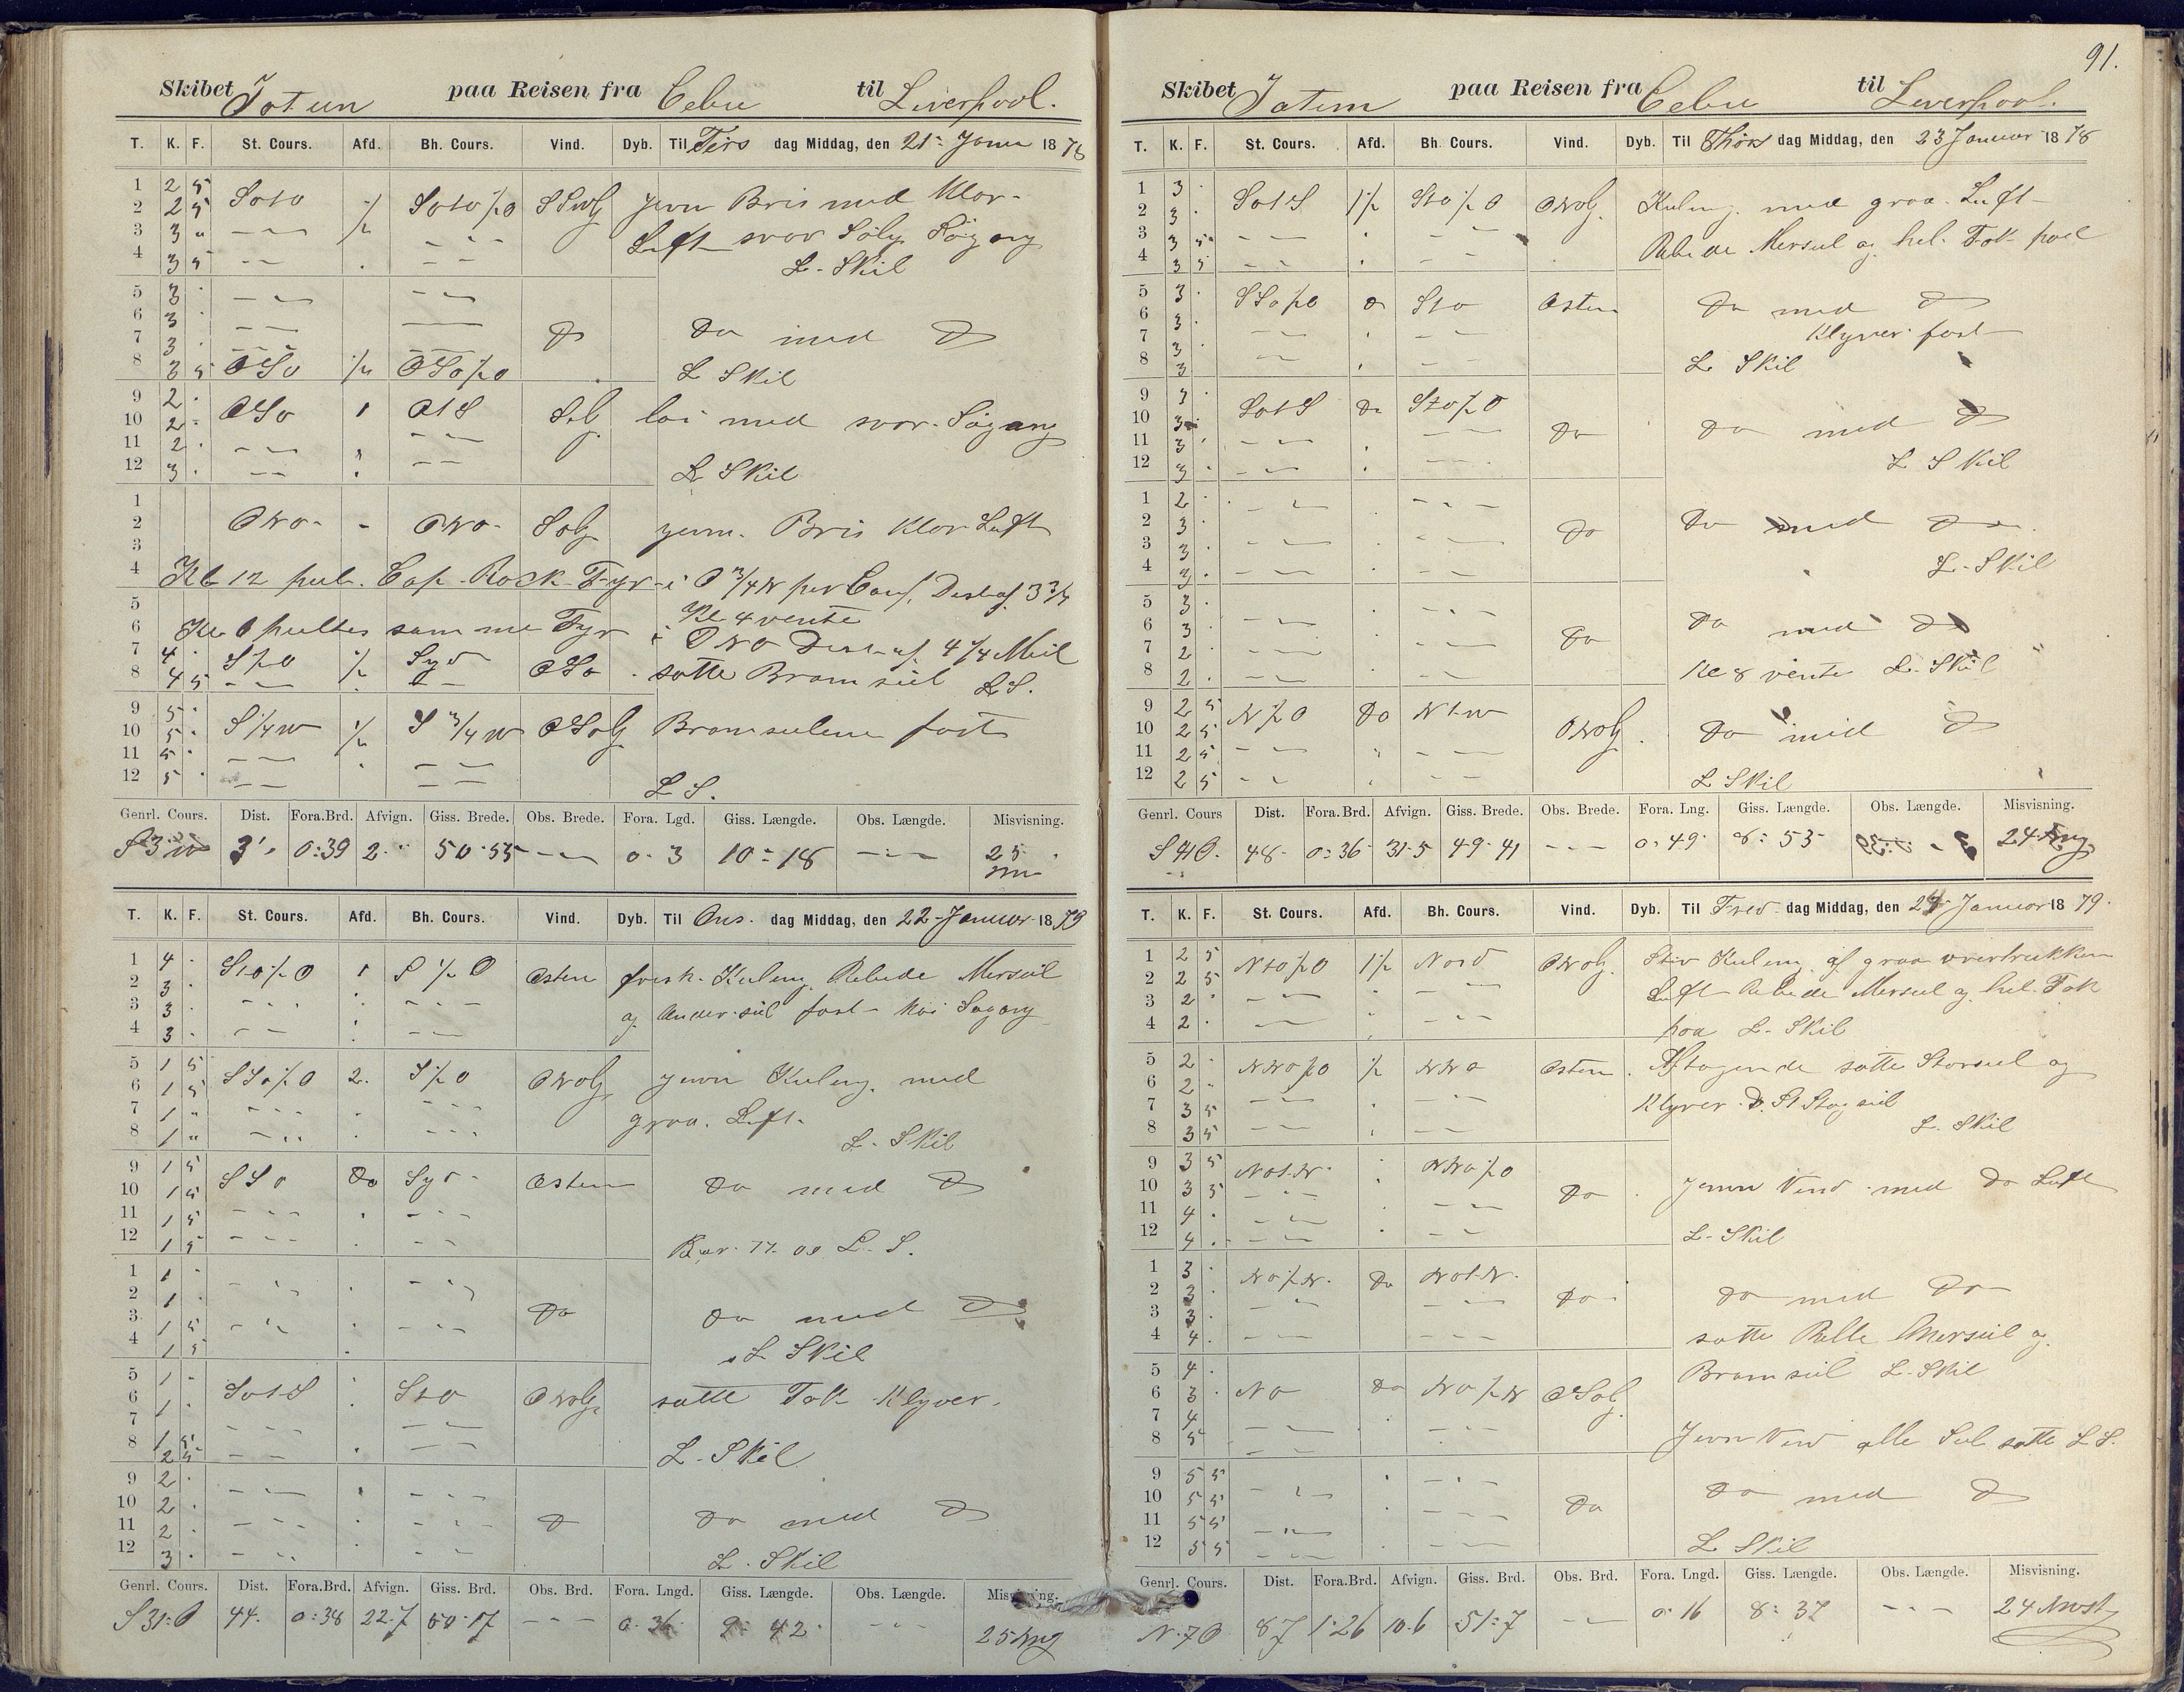 91.
Skibet Jotun paa Reisen fra Cebu til Liverpool.
T. K. F. St. Cours. Afd. Bh. Cours. Vind. Dyb. Til Tirs dag Middag, den 21 Janu 1878
1 2 5 SotO ½ SotO½O SSWlg jevn Bris med Klar
2 2 5
3 3 " Luft svær Sølig Søgang
4 3 5 L. Skil
5 3
6 3 Do Do med Do
7 3
8 3 5 OSO ½ OSO½O L Skil
9 2 OSO 1 OtS Solg loi med svor. Søgang
10 2
11 2
12 3 L Skil
1
2 ONO - ONO Solg jevn. Bris Klar Luft
3
4 Kl 12 peil. Cap Rock Fyr i O¾N per Comp. Dist af 3¾
5 Kl 4 vente
6 Kl 6 peiltes samme Fyr i ONO Dist af 4¼ Mil
7 4 S½O ½ Syd OSO satte Bramseil L S.
8 4 5
9 5 S¼W ½ S¾W OSolg Bramseilene fast
10 5
11 5
12 5 L S.
Genrl. Cours. Dist. Fora.Brd. Afvign. Giss. Brede. Obs. Brede. Fora. Lgd. Giss. Længde. Obs. Længde. Misvisning.
S 3 W 3' 0:39 2 50 55 0. 3 10 18 25
T. K. F. St. Cours. Afd. Bh. Cours. Vind. Dyb. Til Ons. dag Middag, den 22 Januar 1879
1 4 StO½O 1 S½O Osten frisk. Kuling Rebede Merseil
2 3
3 3 og Under seil fast - høi Søgang
4 3
5 1 5 SSO½O 2. S½O ONOlg jevn Kuling med
6 1 5
7 1 " graa. Luft.
8 1 " L. Skil
9 1 5 SSO Do Syd Osten Do med Do
10 1 5
11 1 5
12 1 5 Bar. 77.00 L. S.
1 1
2 1 Do Do med Do
3 1 5
4 1 5 L Skil
5 1
6 1 SotS StO ONOlg satte Fok Klyver.
7 1 5
8 2 5 L. Skil
9 2
10 2 Do Do med Do
11 2
12 3 L. Skil
Genrl. Cours. Dist. Fora.Brd. Afvign. Giss. Brd. Obs. Brd. Fora. Lngd. Giss. Længde. Obs. Længde. Misvisning.
S 31 O 44. 0:38 22.7 50 17 0. 36 9 42 25
Skibet Jotun paa Reisen fra Cebu til Liverpool.
T. K. F. St. Cours. Afd. Bh. Cours. Vind. Dyb. Til Thors dag Middag, den 23 Januar 1878
1 3 SotS 1½ StO½O ONOlg. Kuling med graa. Luft
2 3
3 3 5 Rebede Merseil og hel. Fok paa
4 3 5
5 3 SSO½O Do StO Osten Do med Do
6 3
7 3 Klyver fast
8 3 L. Skil
9 3 SotS Do StO½O
10 3 Do Do med Do
11 3
12 3 L Skil
1 2
2 3 Do Do med Do
3 3
4 3 L. Skil
5 3
6 3 Do Do med Do
7 2
8 2 Kl 8 vente L. Skil
9 2 5 N½O Do NtW ONOlg Do med Do
10 2 5
11 2 5
12 2 5 L Skil
Genrl. Cours Dist. Fora.Brd. Afvign. Giss. Brede. Obs. Brede. Fora. Lng. Giss. Længde. Obs. Længde. Misvisning.
S 41 O. 48. 0:36 31.5 49.41 0.49 8 53 24
T. K. F. St. Cours. Afd. Bh. Cours. Vind. Dyb. Til Fred dag Middag, den 24 Januar 1879.
1 2 5 NtO½O 1½ Nord ONOlg. Stiv Kuling af graa overtrukken
2 2 5
3 2 Luft Rebede Merseil og hel. Fok
4 2 paa L. Skil
5 2 NNO½O ½ NNO Osten Aftagende satte Storseil og
6 2
7 3 5 Klyver Do St Stagseil
8 3 5 L. Skil
9 3 5 NotN. NNO½O
10 3 5 Do Jevn Vind med Do Luft
11 4
12 4 L. Skil
1 3 NO½N. Do NotN.
2 3 Do Do med Do
3 3
4 4 satte Merseil og
5 4 Bramseil L. Skil
6 3 NO Do NO½N OSolg
7 4
8 5 Jevn Vind alle Seil satte L S.
9 5 5
10 5 5 Do Do med Do
11 5 5
12 5 5 L Skil
Genrl. Cours. Dist. Fora.Brd. Afvign. Giss. Brd. Obs. Brd. Fora. Lngd. Giss. Længde. Obs. Længde. Misvisning.
N. 7 O 87 1:26 10.6 51:7 0:16 8: 37 24